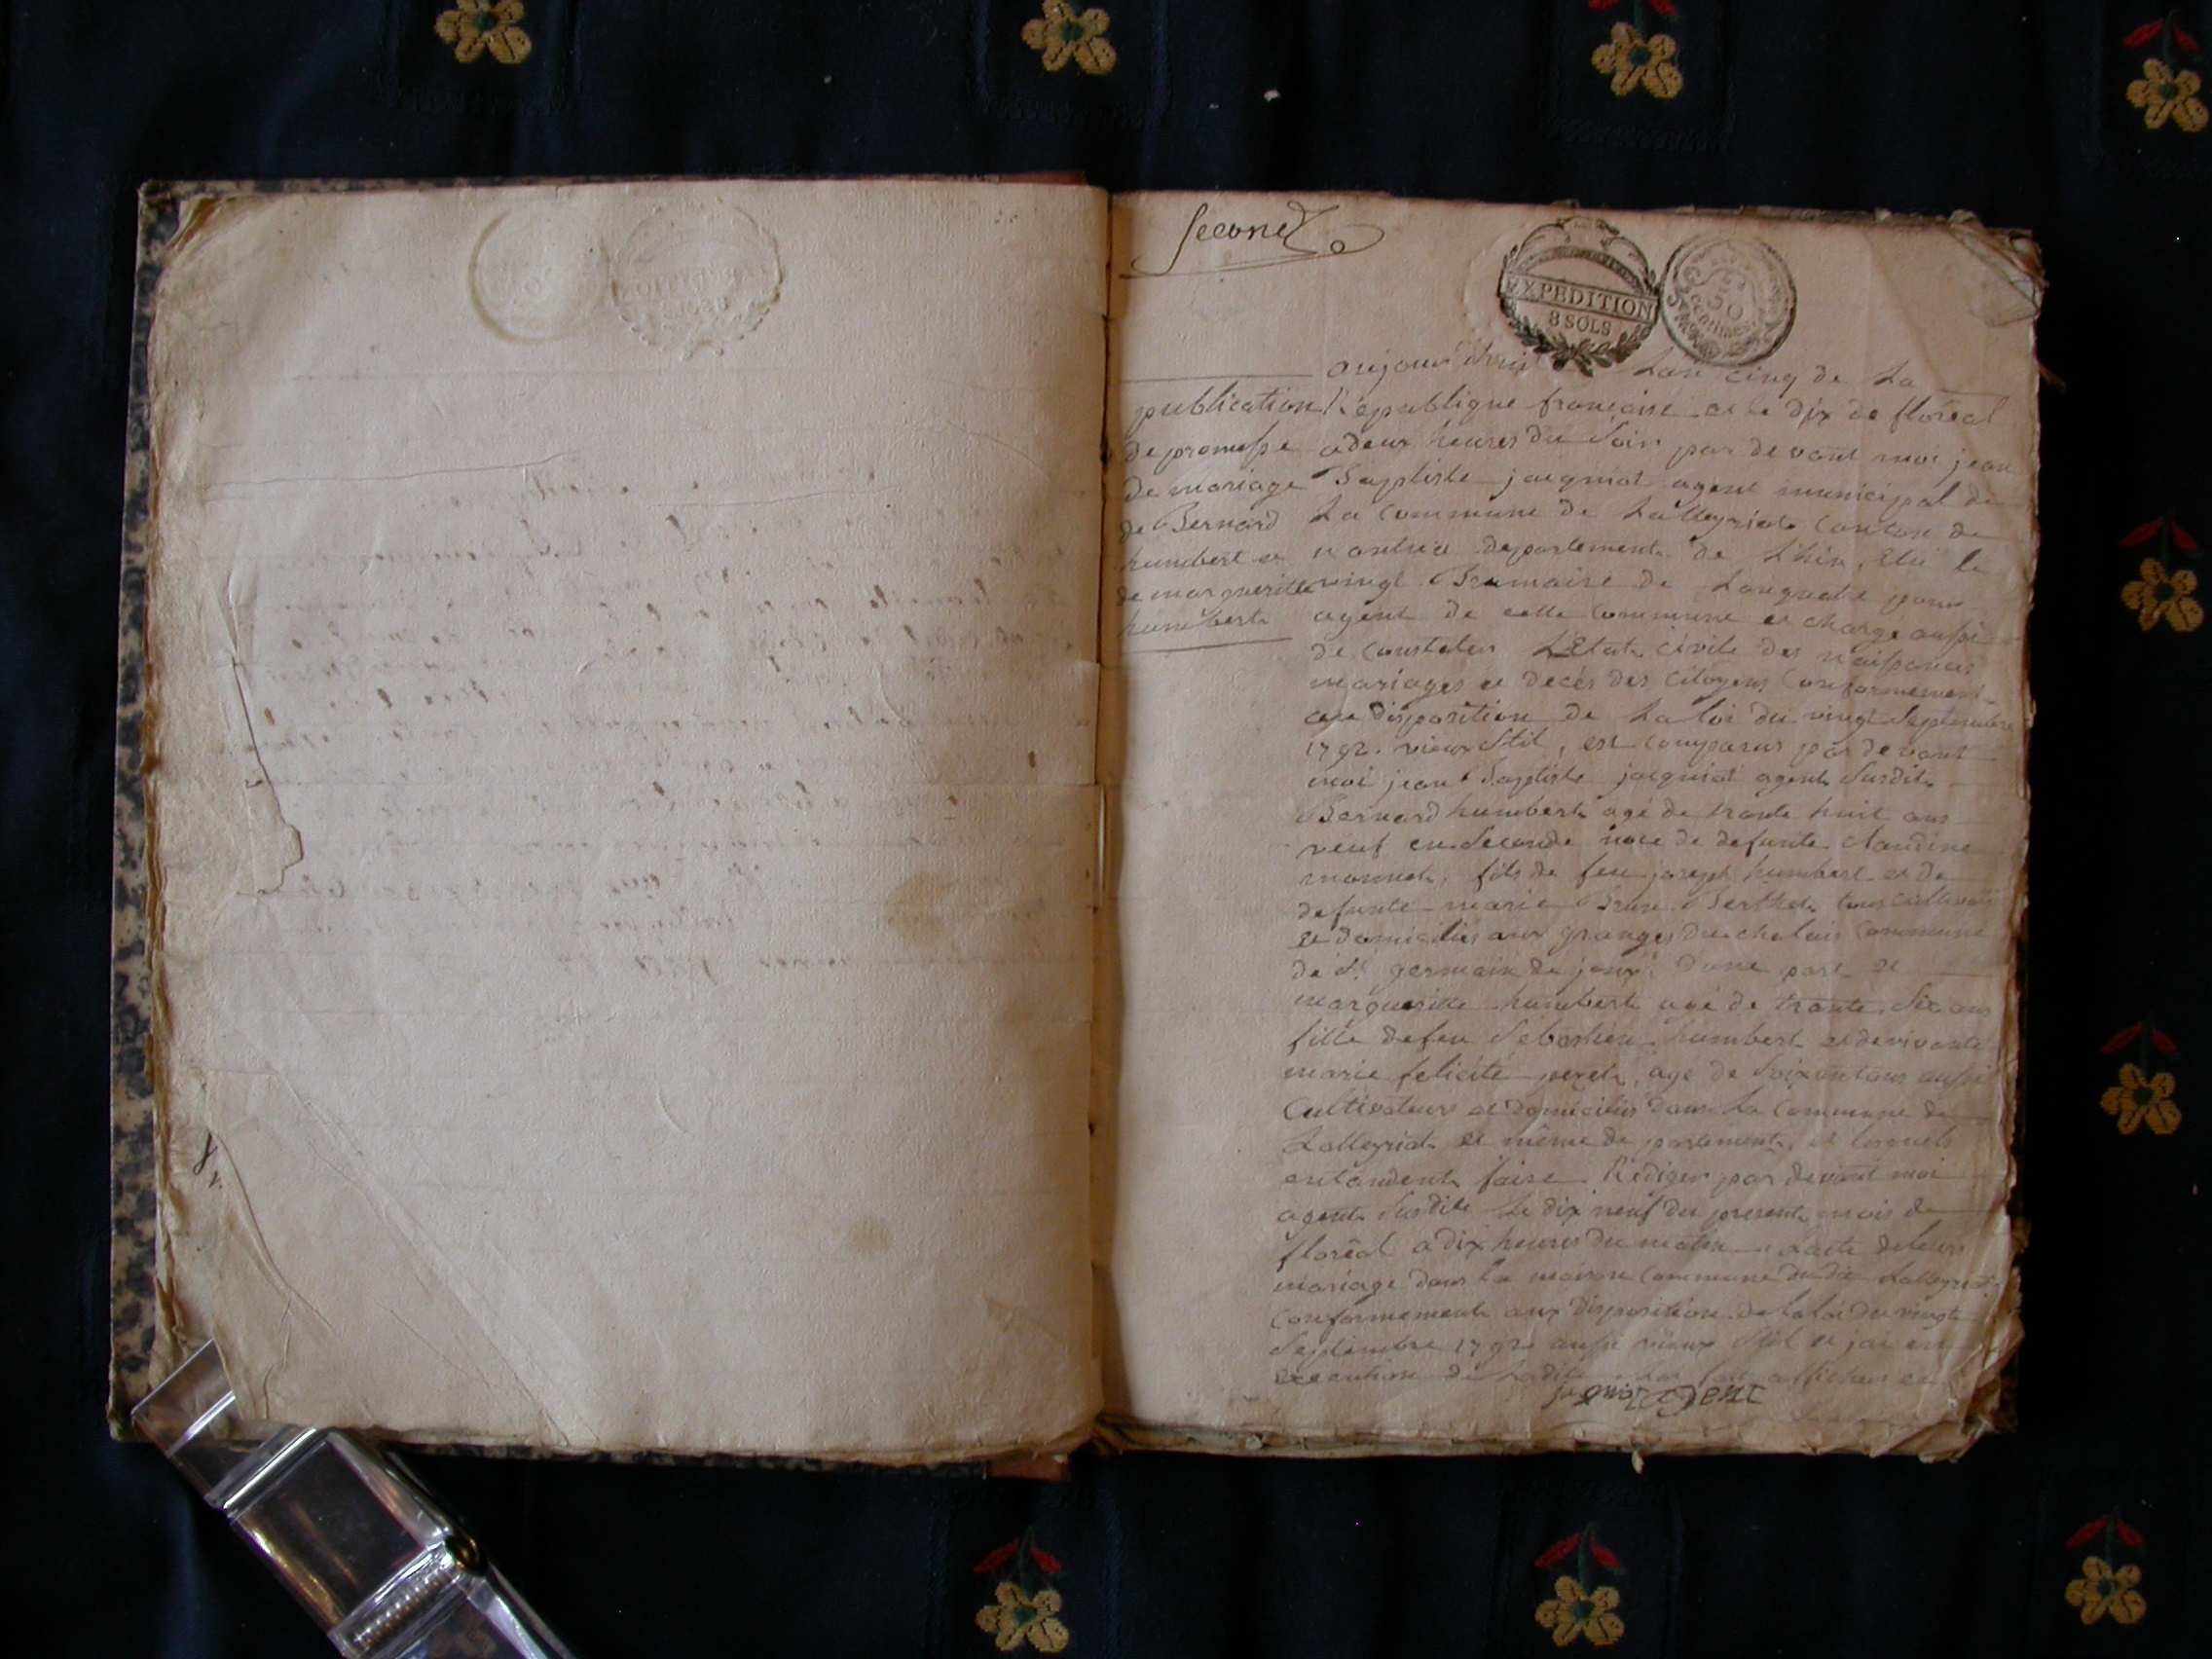 Second
EXPEDITION
8 SOLS
50
centimes
publication
de promesse
de mariage
de Bernard
humbert et
de margueritte
humbert
aujourdhui Lan cinq de La
Republique francaise et le dix de floréal
a deux heures du Soir par devant moi jean
Baptiste jacquiot agent municipal de
La Commune de Lalleyriat Canton de
nantua departement de Lhin, élu le
vingt Brumaire de Lanquatre pour
agent de cette Commune et chargé aussi
de constater LEtat civile des naissances
mariages et decés des citoyens Conformement
aux disposition de La loi du vingt Septembre
1792. vieux Stil, est comparus par devant
moi jean Baptiste jacquiot agent Susdit
Bernard humbert agé de trante huit ans
veuf en Seconde noce de defunte Claudine
fils de feu joseph humbert et de
defunte marie Berthet tous cultivateurs
et domiciliés aux granges du chalais Commune
de St germain de joux, dune part et
margueritte humbert agé de trante Six ans
fille defeu Sebastien humbert et de vivante
marie felicité perret, age de Soixantans aussi
Cultivateurs et domiciliés dans La Commune de
Lalleyriat et même departement, et lesquels
entandent faire Rédiger par devant moi
agent Susdit Le dix neuf du present mois de
floréal a dix heures du matin Lacte de leurs
mariage dans La maison Commune dudit Lalleyriat
Conformement aux disposition de la loi du vingt
Septembre 1792 aussi vieux Stil et jai en
execution de Ladite Loi fait afficher